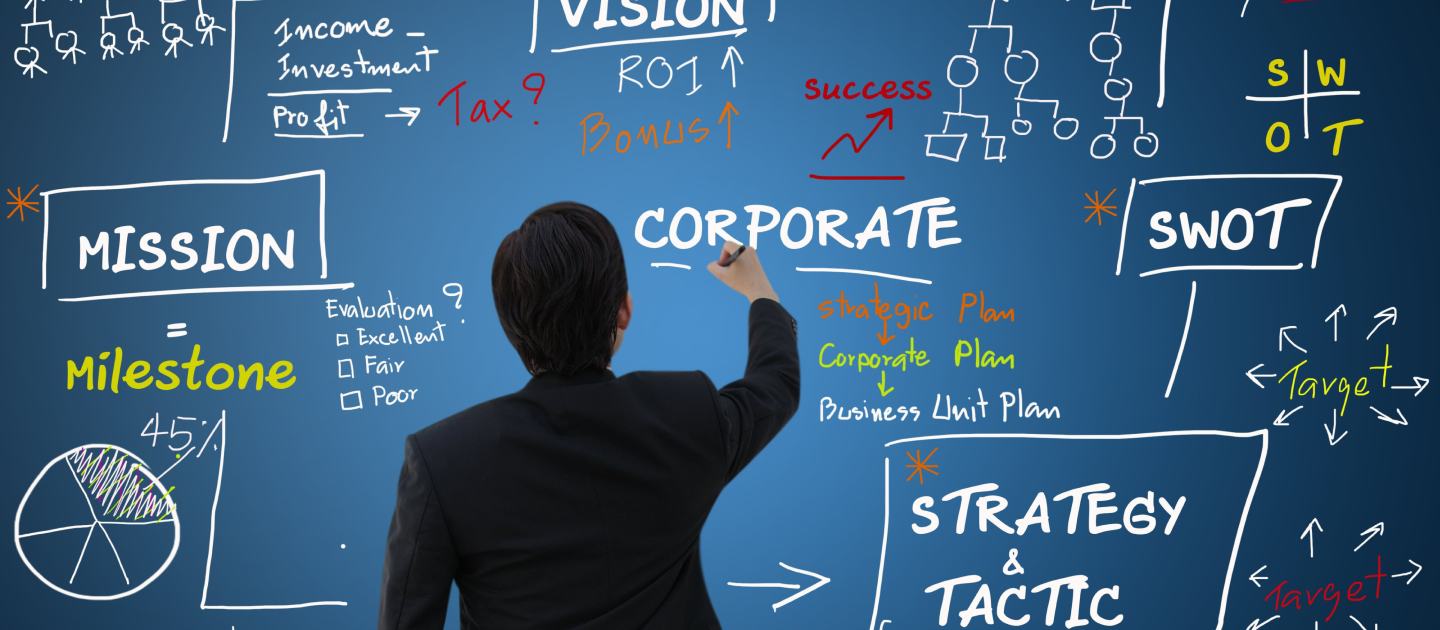 Income -
Investment
Profit → Tax?
VISION
ROI ↑
Bonus ↑
success
S W
O T
MISSION
=
Milestone
Evaluation?
Excellent
Fair
Poor
45%
CORPORATE
strategic Plan
Corporate Plan
Business Unit Plan
SWOT
Target
STRATEGY
&
TACTIC
Target